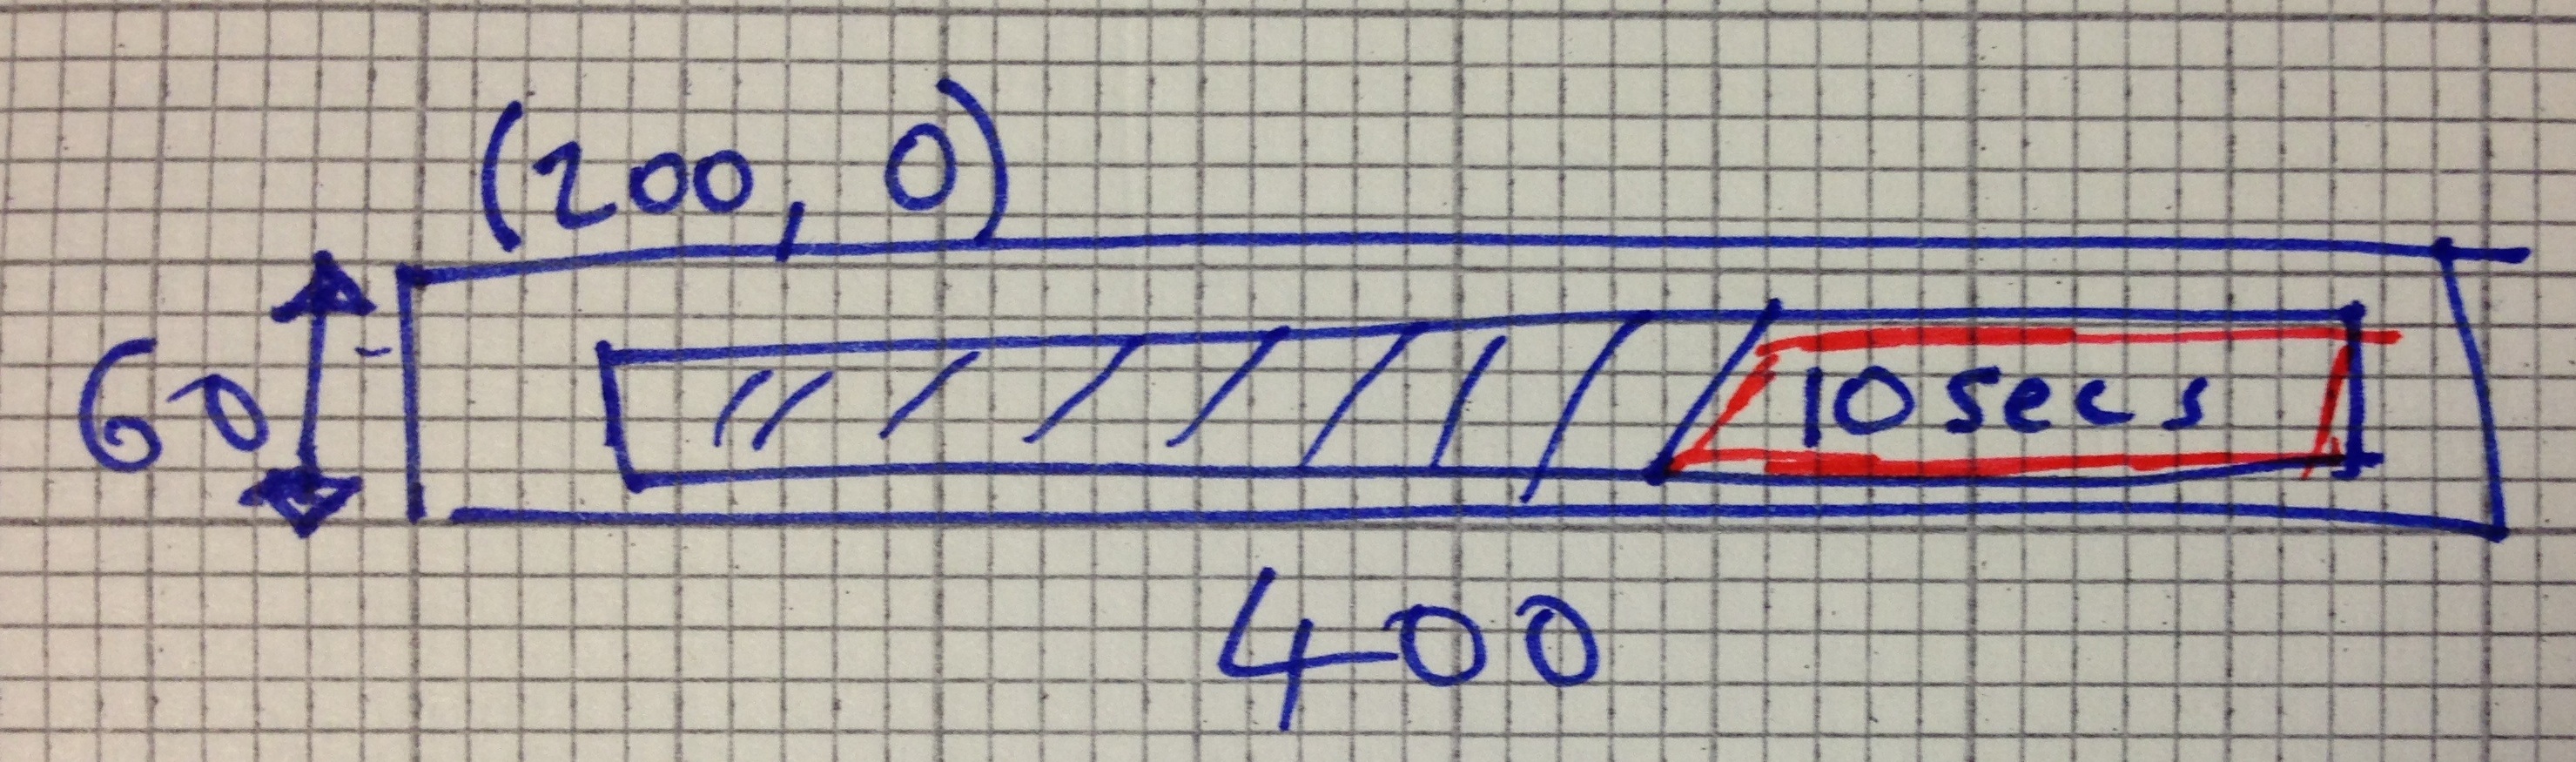 (200, 0)
60
10 secs
400